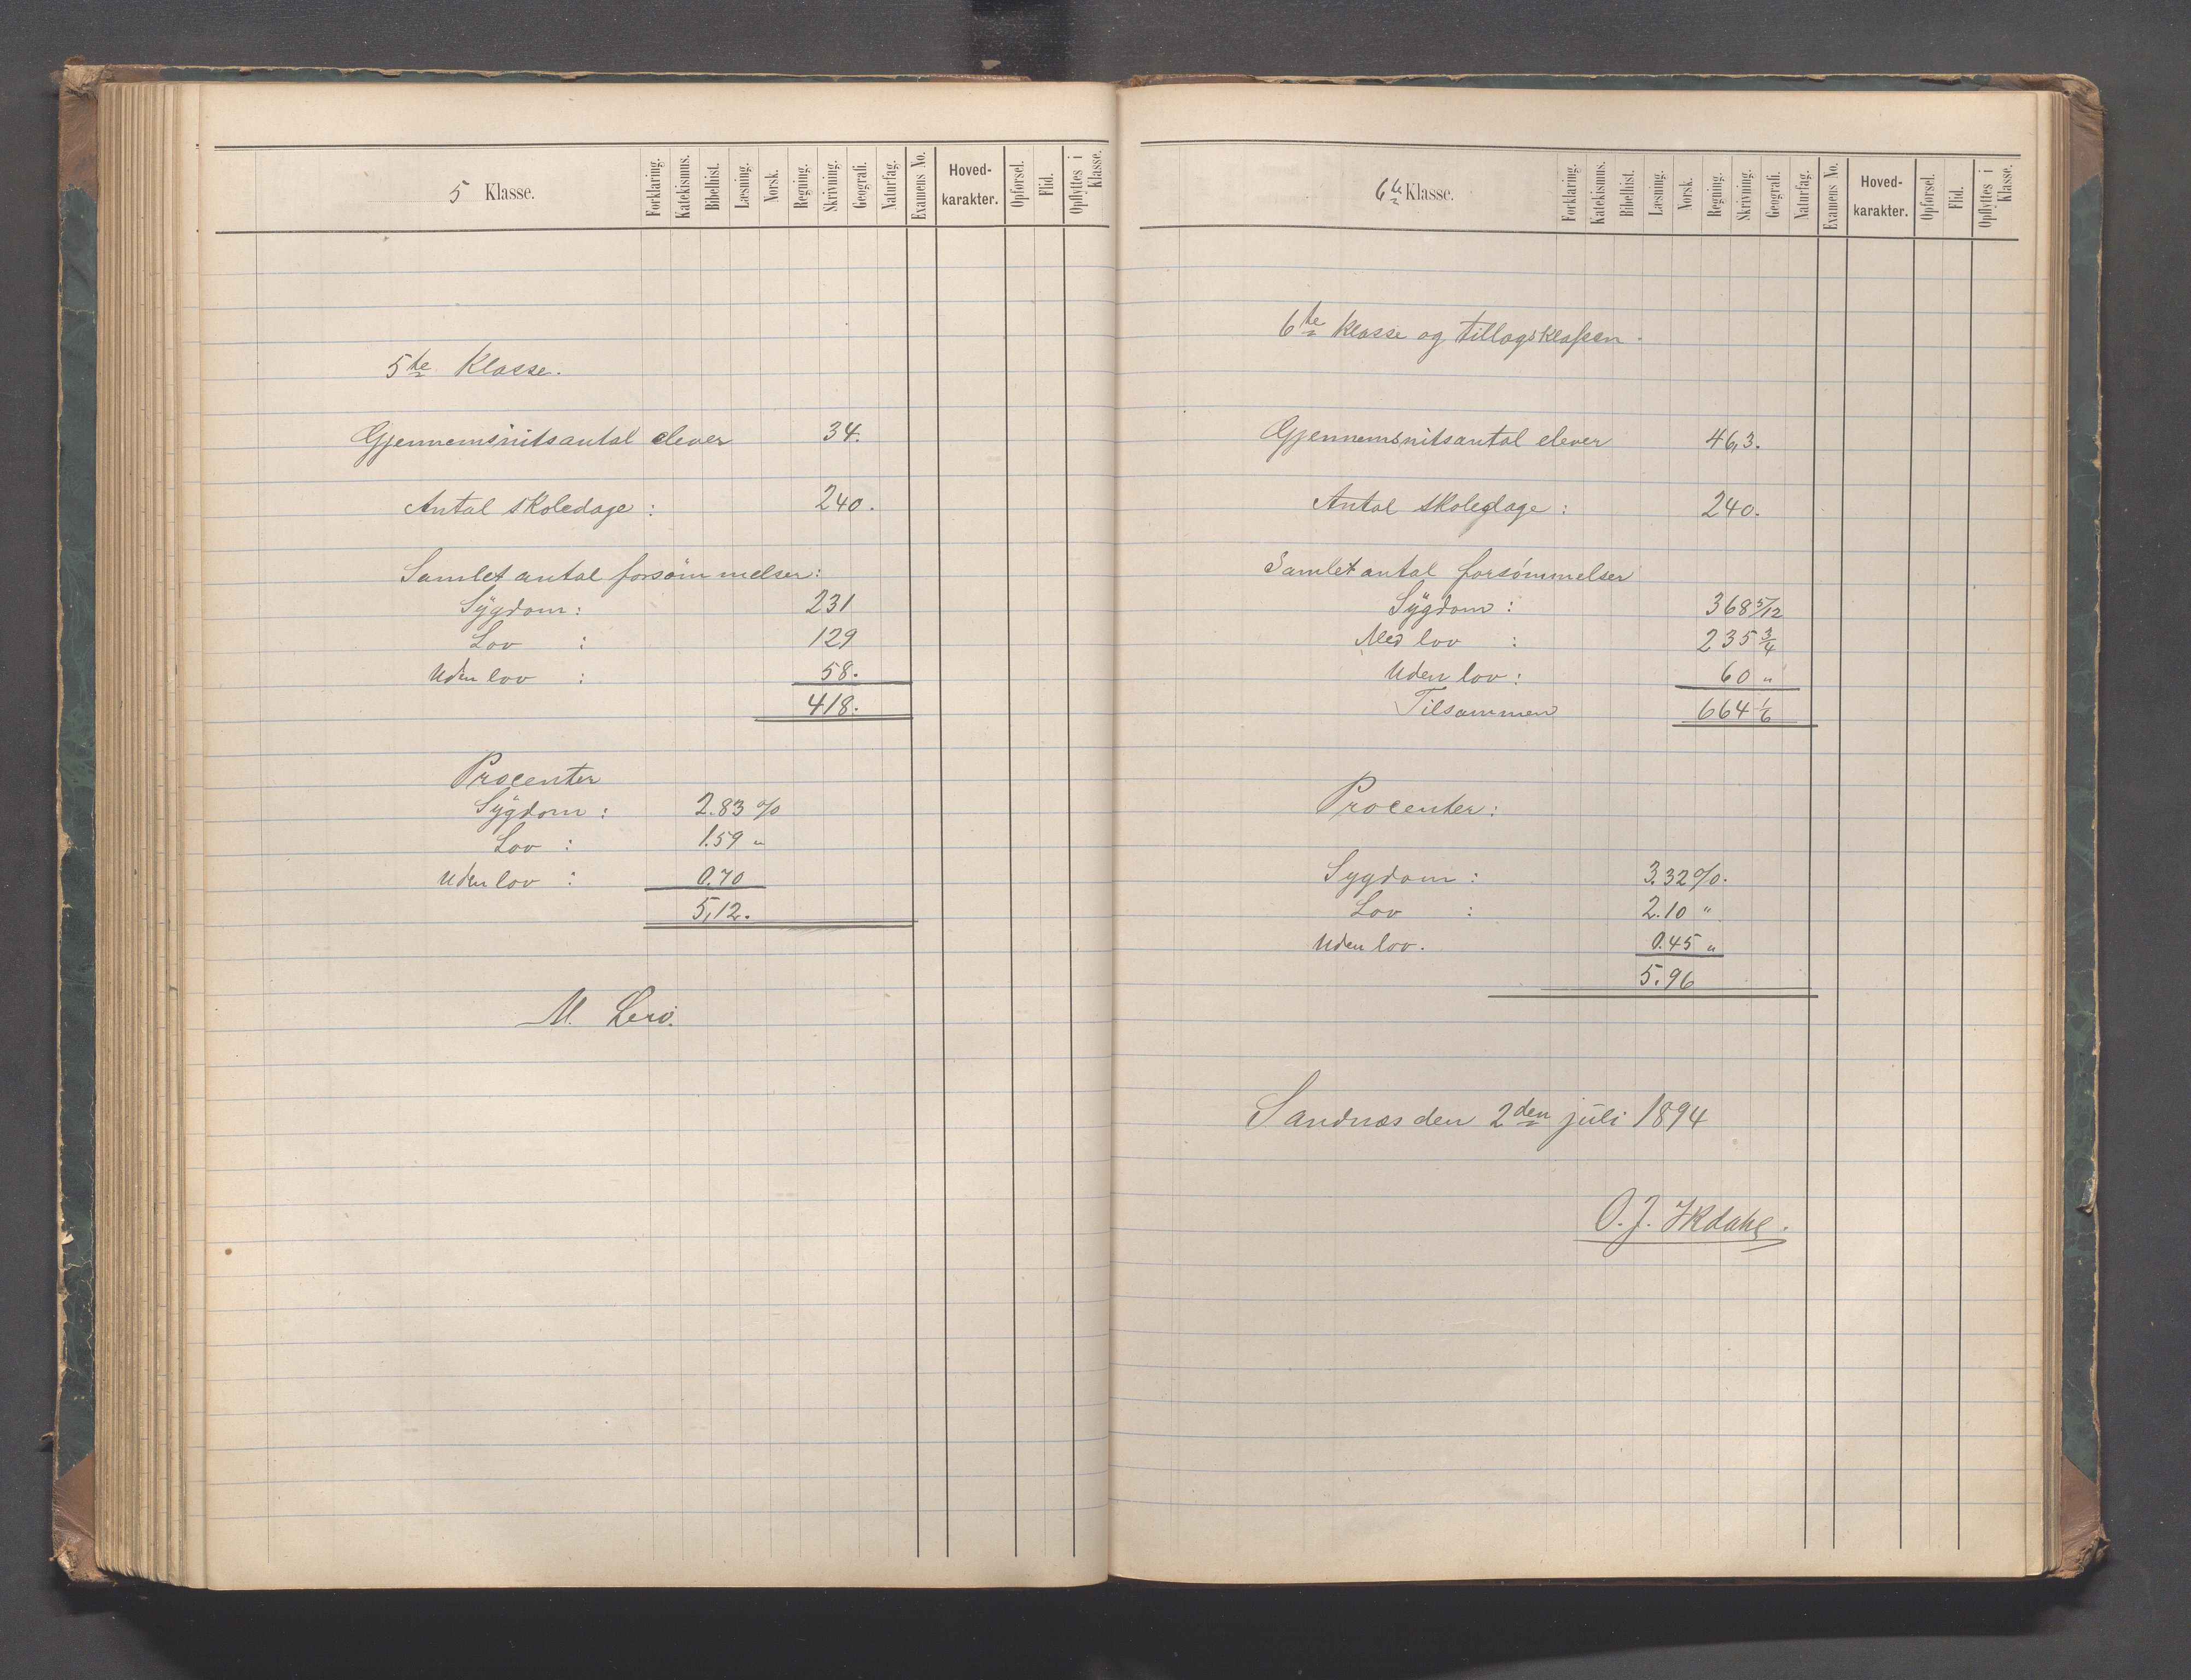 5 Klasse.
Forklaring.
Katekismus.
Bibelhist.
Læsning.
Norsk.
Regning.
Skrivning.
Geografi.
Naturfag.
Examens No.
Hoved-
karakter.
Opførsel.
Flid.
Opflyttes i
Klasse.
5te Klasse.
Gjennemsnitsantal elever 34.
Antal skoledage : 240.
Samlet antal forsømmelser:
Sygdom: 231
Lov : 129
Uden lov : 58.
418.
Procenter
Sygdom : 2.83 %
Lov : 1.59 "
Uden lov : 0.70
5,12.
M.
6te Klasse.
Forklaring.
Katekismus.
Bibelhist.
Læsning.
Norsk.
Regning.
Skrivning.
Geografi.
Naturfag.
Examens No.
Hoved-
karakter.
Opførsel.
Flid.
Opflyttes i
Klasse.
6te Klasse og tillægsklassen.
Gjennemsnitsantal elever 46,3.
Antal skoledage : 240.
Samlet antal forsømmelser
Sygdom : 368 5/12
Med lov : 235 3/4
Uden lov : 60 "
Tilsammen 664 1/6
Procenter :
Sygdom : 3.32 %.
Lov : 2.10 "
Uden lov. 0.45 "
5.96
Sandnes den 2den juli 1894
O. J. Ikdahl.